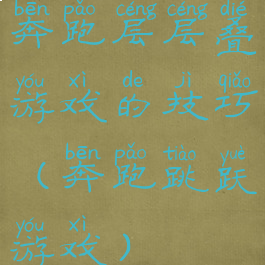 bēn pǎo céng céng dié
奔跑层层叠
yóu xì de jì qiǎo
游戏的技巧
bēn pǎo tiào yuè
（奔跑跳跃
yóu xì
游戏）